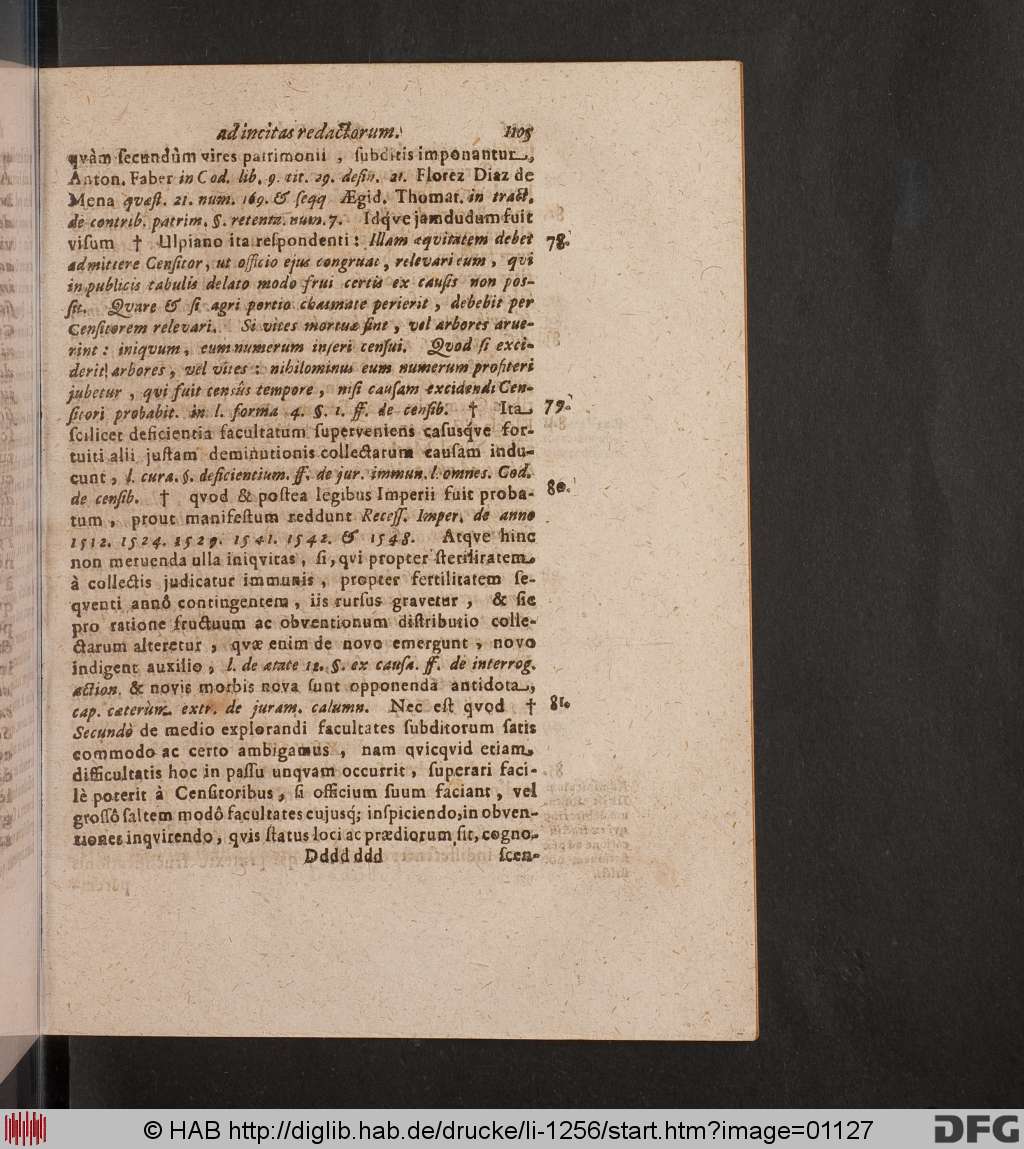 ad incitas redactorum. 1105
qvàm ſecundùm vires patrimonii, ſubditis imponantur,
Anton. Faber in Cod. lib. 9. tit. 29. defin. 21. Florez Diaz de
Mena qvæſt. 21. num. 169. & ſeqq Ægid. Thomat. in tract.
de contrib. patrim. §. retenta. num. 7. Idqve jamdudum fuit
viſum † Ulpiano ita reſpondenti: Illam æqvitatem debet 78.
admittere Cenſitor, ut officio ejus congruat, relevari eum, qvi
in publicis tabulis delato modo frui certis ex cauſis non poſ-
ſit. Qvare & ſi agri portio chaſmate perierit, debebit per
Cenſitorem relevari. Si vites mortuæ ſint, vel arbores arue-
rint: iniqvum, eum numerum inſeri cenſui. Qvod ſi exci-
derit arbores, vel vites: nihilominus eum numerum profiteri
jubetur, qvi fuit censûs tempore, niſi cauſam excidendi Cen-
ſitori probabit. in l. forma 4. §. 1. ff. de cenſib. † Ita 79.
ſcilicet deficientia facultatum ſuperveniens caſusqve for-
tuiti alii juſtam deminutionis collectarum cauſam indu-
cunt, l. cura. §. deficientium. ff. de jur. immun. l. omnes. Cod.
de cenſib. † qvod & poſtea legibus Imperii fuit proba- 80.
tum, prout manifeſtum reddunt Receſſ. Imper. de anno
1512. 1524. 1529. 1541. 1542. & 1548. Atqve hinc
non metuenda ulla iniqvitas, ſi, qvi propter ſterilitatem
à collectis judicatur immunis, propter fertilitatem ſe-
qventi annô contingentem, iis rurſus gravetur, & ſic
pro ratione fructuum ac obventionum diſtributio colle-
ctarum alteretur, qvæ enim de novo emergunt, novo
indigent auxilio, l. de ætate 11. §. ex cauſa. ff. de interrog.
action. & novis morbis nova ſunt opponenda antidota,
cap. cæterùm. extr. de juram. calumn. Nec eſt qvod † 81.
Secundò de medio explorandi facultates ſubditorum ſatis
commodo ac certo ambigamus, nam qvicqvid etiam
difficultatis hoc in paſſu unqvam occurrit, ſuperari faci-
lè poterit à Cenſitoribus, ſi officium ſuum faciant, vel
groſſô ſaltem modô facultates cujusq; inſpiciendo, in obven-
tiones inqvirendo, qvis ſtatus loci ac prædiorum ſit, cogno-
Dddd ddd ſcen-
© HAB http://diglib.hab.de/drucke/li-1256/start.htm?image=01127
DFG